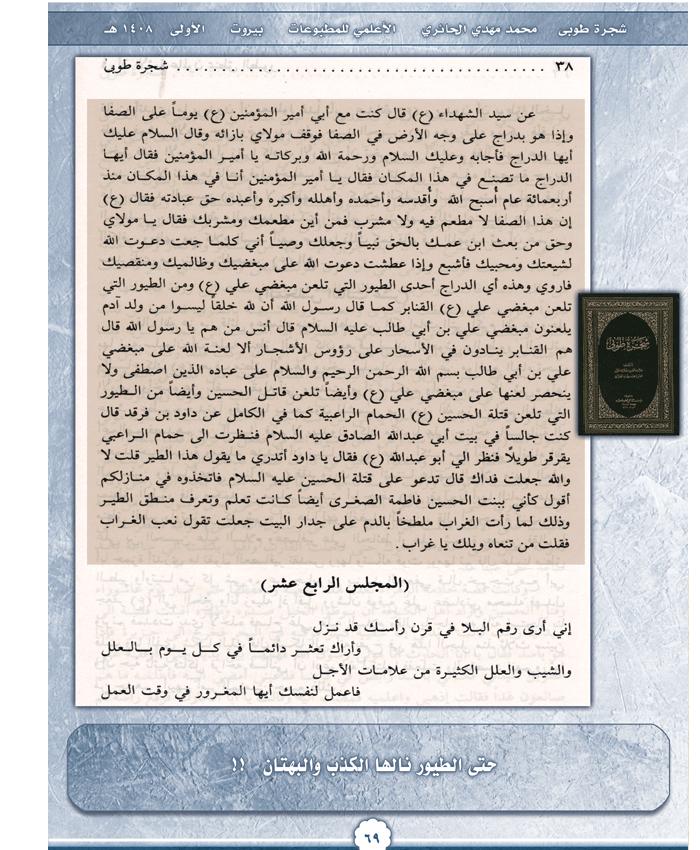 شجرة طوبى محمد مهدي الحائري الأعلمي للمطبوعات بيروت الأولى ١٤٠٨ هـ
٣٨ ........................................ شجرة طوبى
عن سيد الشهداء (ع) قال كنت مع أبي أمير المؤمنين (ع) يوماً على الصفا
وإذا هو بدراج على وجه الأرض في الصفا فوقف مولاي بازائه وقال السلام عليك
أيها الدراج فأجابه وعليك السلام ورحمة الله وبركاته يا أمير المؤمنين فقال أيها
الدراج ما تصنع في هذا المكان فقال يا أمير المؤمنين أنا في هذا المكان منذ
أربعمائة عام أُسبح الله وأُقدسه وأحمده وأهلله وأكبره وأعبده حق عبادته فقال (ع)
إن هذا الصفا لا مطعم فيه ولا مشرب فمن أين مطعمك ومشربك فقال يا مولاي
وحق من بعث ابن عمك بالحق نبياً وجعلك وصياً أني كلما جعت دعوت الله
لشيعتك ومحبيك فأشبع وإذا عطشت دعوت الله على مبغضيك وظالميك ومنقصيك
فاروي وهذه أي الدراج أحدى الطيور التي تلعن مبغضي علي (ع) ومن الطيور التي
تلعن مبغضي علي (ع) القنابر كما قال رسول الله أن لله خلقاً ليسوا من ولد آدم
يلعنون مبغضي علي بن أبي طالب عليه السلام قال أنس من هم يا رسول الله قال
هم القنابر ينادون في الأسحار على رؤوس الأشجار ألا لعنة الله على مبغضي
علي بن أبي طالب بسم الله الرحمن الرحيم والسلام على عباده الذين اصطفى ولا
ينحصر لعنها على مبغضي علي (ع) وأيضاً تلعن قاتل الحسين وأيضاً من الطيور
التي تلعن قتلة الحسين (ع) الحمام الراعبية كما في الكامل عن داود بن فرقد قال
كنت جالساً في بيت أبي عبدالله الصادق عليه السلام فنظرت الى حمام الراعبي
يقرقر طويلاً فنظر الي أبو عبدالله (ع) فقال يا داود أتدري ما يقول هذا الطير قلت لا
والله جعلت فداك قال تدعو على قتلة الحسين عليه السلام فاتخذوه في منازلكم
أقول كأني ببنت الحسين فاطمة الصغرى أيضاً كانت تعلم وتعرف منطق الطير
وذلك لما رأت الغراب ملطخاً بالدم على جدار البيت جعلت تقول نعب الغراب
فقلت من تنعاه ويلك يا غراب .
(المجلس الرابع عشر)
إني أرى رقم البلا في قرن رأسك قد نزل
وأراك تعثر دائماً في كل يوم بالعلل
والشيب والعلل الكثيرة من علامات الأجل
فاعمل لنفسك أيها المغرور في وقت العمل
شجرة طوبى
حتى الطيور نالها الكذب والبهتان !!
٦٩